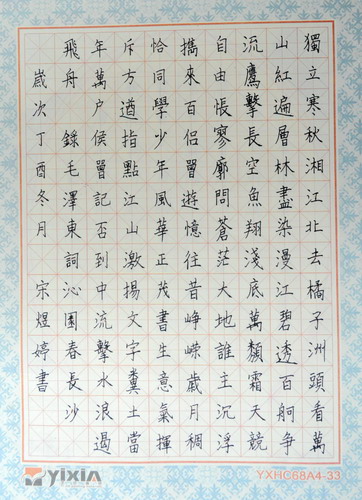 獨立寒秋湘江北去橘子洲頭看萬
山紅遍層林盡染漫江碧透百舸争
流鷹擊長空魚翔淺底萬類霜天競
自由悵寥廓問蒼茫大地誰主沉浮
攜來百侶曾遊憶往昔崢嶸歲月稠
恰同學少年風華正茂書生意氣揮
斥方遒指點江山激揚文字糞土當
年萬户侯曾記否到中流擊水浪遏
飛舟 錄毛澤東詞沁園春長沙
歲次丁酉冬月 宋煜婷書
YIXIN
YXHC68A4-33